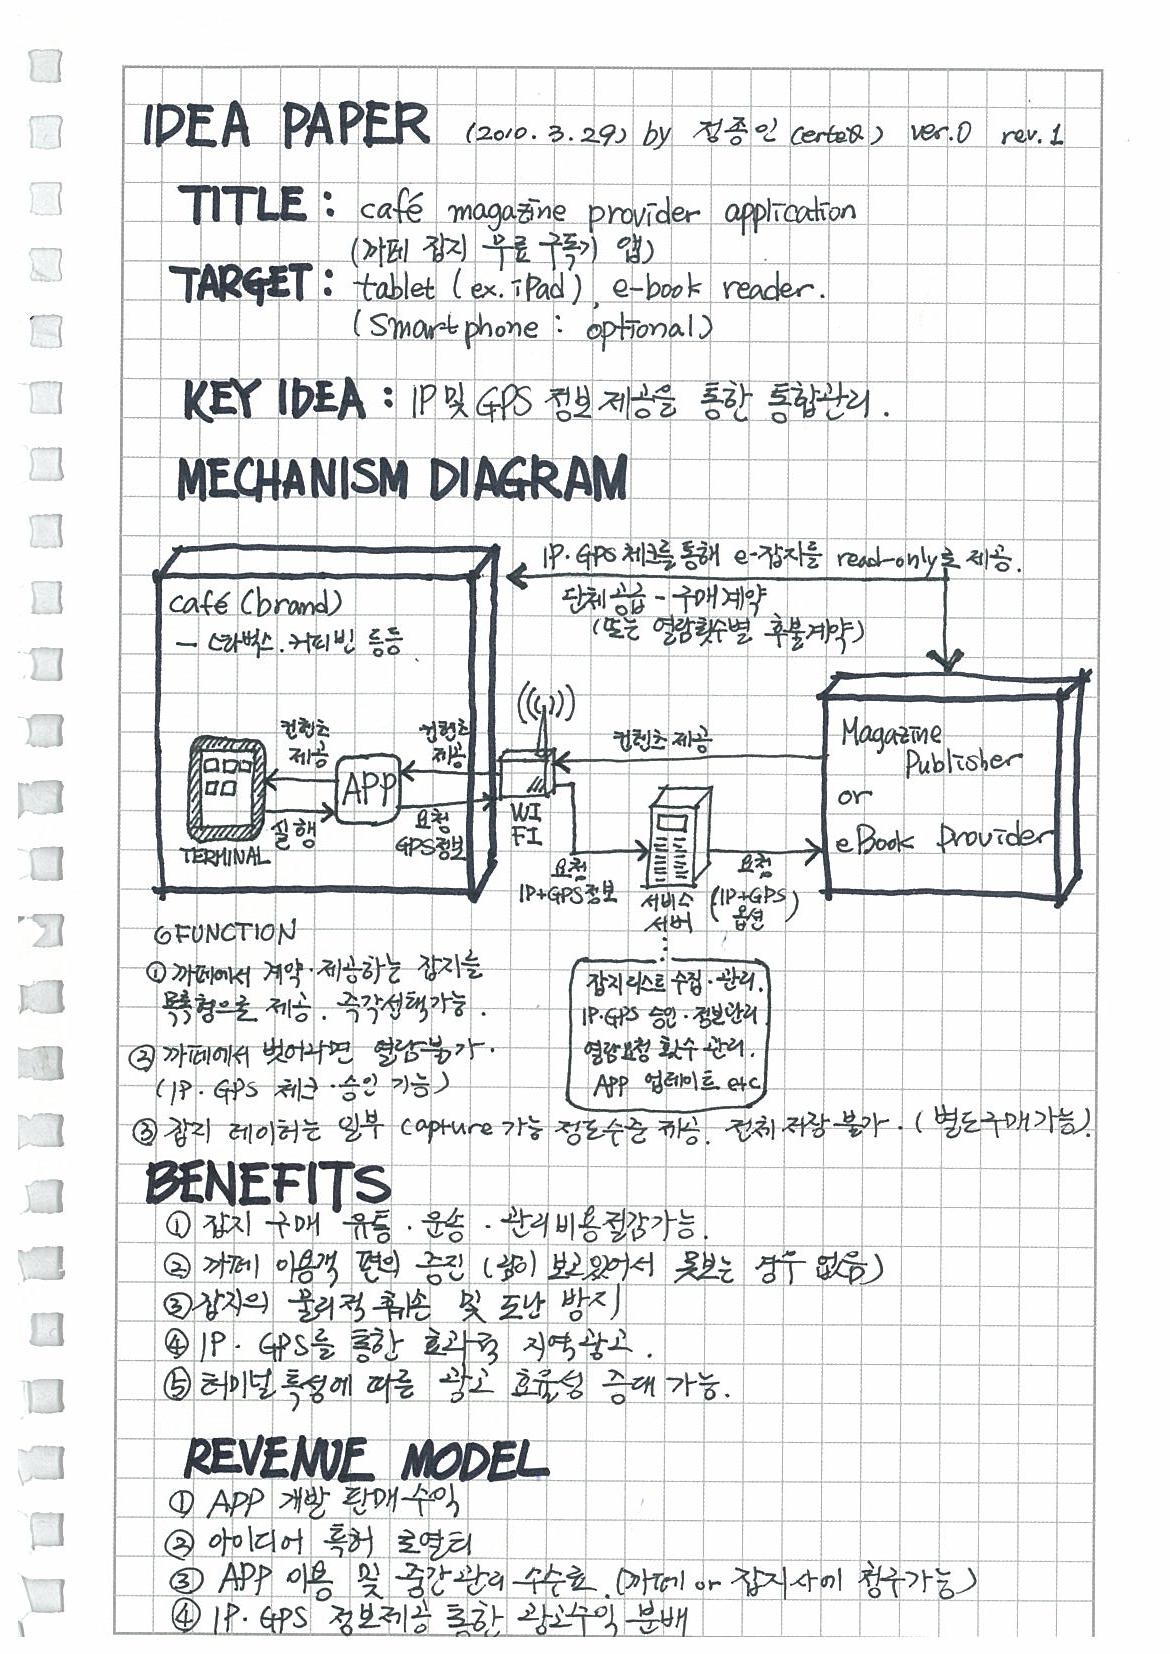 IDEA PAPER (2010.3.29) by 정종인 ver.0 rev.1
TITLE : café magazine provider application
(까페 잡지 무료 구독기 앱)
TARGET : tablet (ex. iPad), e-book reader.
(Smartphone : optional)
KEY IDEA : IP 및 GPS 정보제공을 통한 통합관리.
MECHANISM DIAGRAM
IP·GPS 체크를 통해 e-잡지를 read-only로 제공.
단체공급 - 구매계약
(또는 열람횟수별 후불계약)
café (brand)
- 스타벅스. 커피빈 등등
컨텐츠
제공
컨텐츠
제공
컨텐츠 제공
Magazine
Publisher
or
eBook Provider
APP
실행
요청
GPS정보
TERMINAL
WI
FI
요청
IP+GPS정보
서비스
서버
요청
(IP+GPS)
옵션
잡지리스트 수집·관리.
IP·GPS 승인·정보관리
열람요청 횟수 관리.
APP 업데이트 etc
FUNCTION
① 까페에서 계약·제공하는 잡지를
목록형으로 제공. 즉각선택가능.
② 까페에서 벗어나면 열람불가.
(IP·GPS 체크·승인 기능)
③ 잡지 데이터는 일부 capture 가능 정도수준 제공. 전체 저장 불가. (별도구매가능).
BENEFITS
① 잡지 구매 유통·운송·관리비용절감가능.
② 까페 이용객 편의 증진 (남이 보고있어서 못보는 경우 없음)
③ 잡지의 물리적 훼손 및 도난 방지
④ IP·GPS를 통한 효과적 지역광고.
⑤ 터미널 특성에 따른 광고 효율성 증대 가능.
REVENUE MODEL
① APP 개발 판매수익
② 아이디어 특허 로열티
③ APP 이용 및 중간관리 수수료. (까페 or 잡지사에 청구가능)
④ IP·GPS 정보제공 통한 광고수익 분배